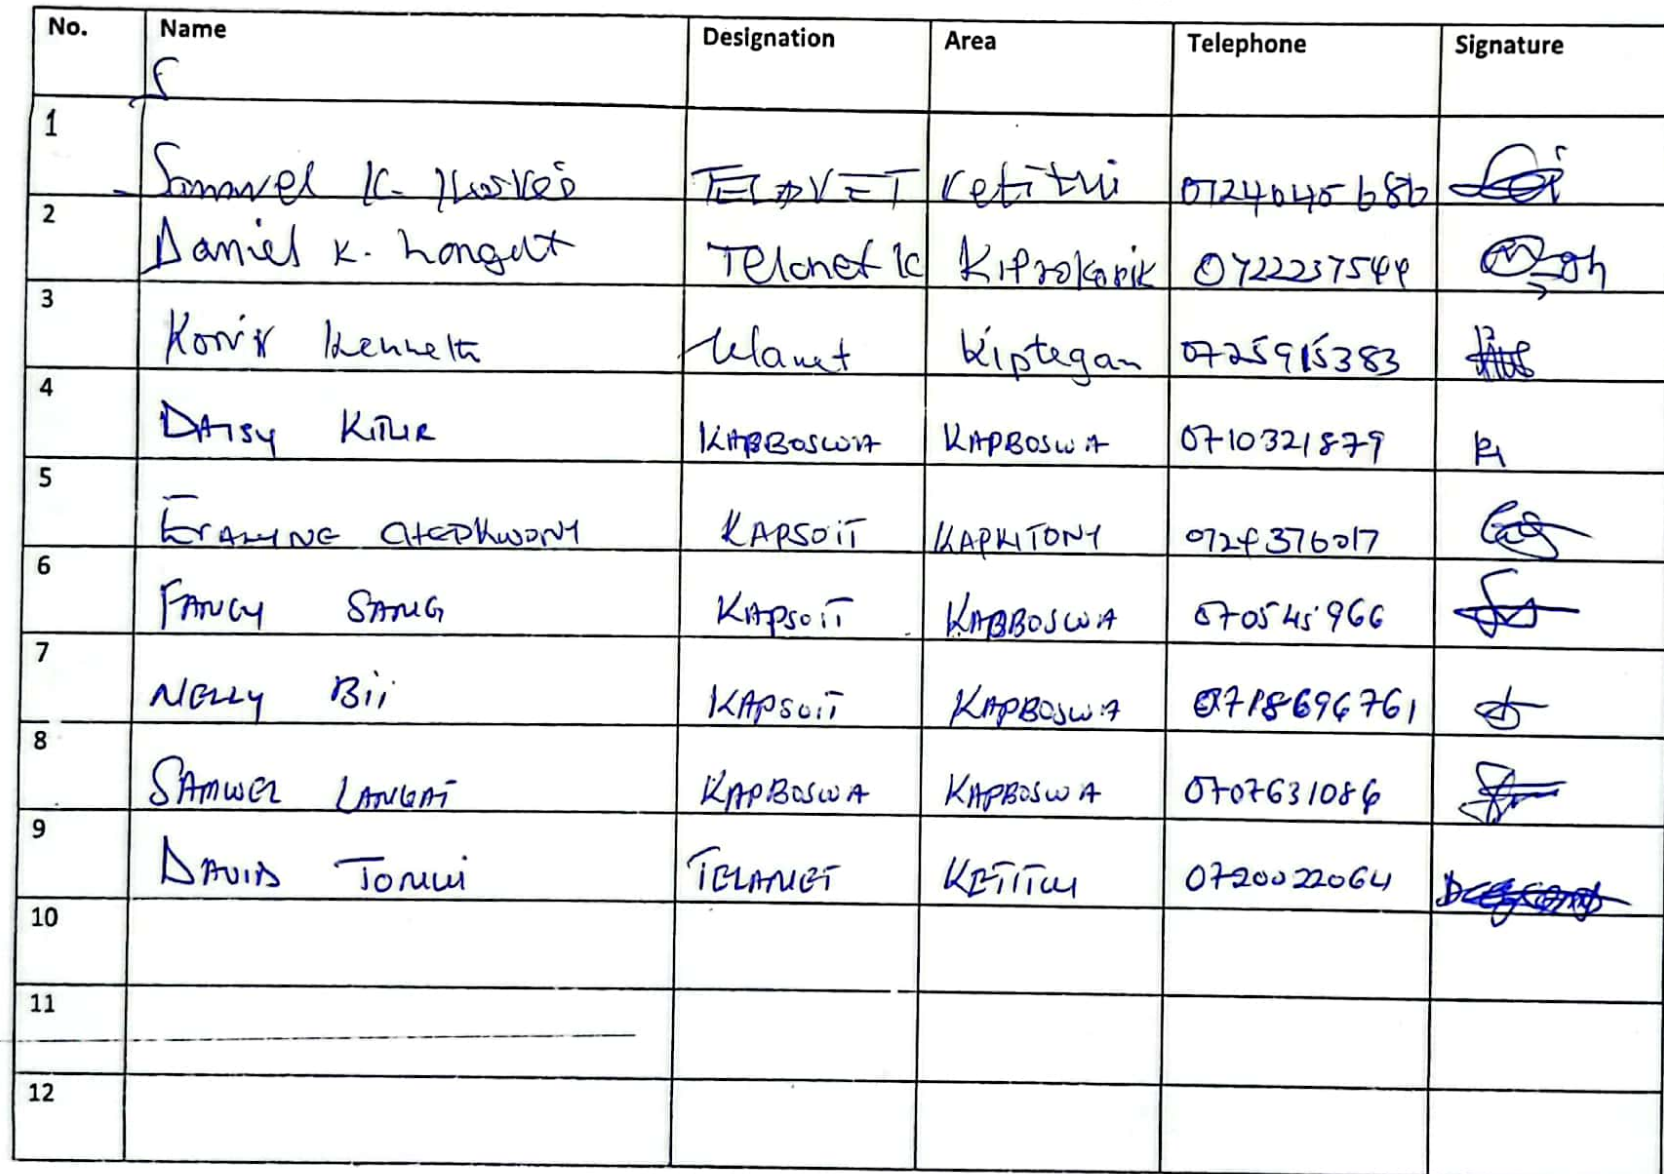 No. Name Designation Area Telephone Signature
1 Samwel K. TELANET Ketitui
2 Daniel K. Langat Telanet Kiprokorik 0722237544
3 Korir Kenneth Telanet Kiptegan 0725915383
4 DAISY KITUR KABBOSWA KAPBOSWA 0710321879
5 CHEPKWONY KAPSOIT KAPKITONY
6 FANCY SANG KAPSOIT KABBOSWA 070545966
7 NELLY Bii KAPSOIT KAPBOSWA 0718696761
8 SAMWEL LANGAT KAPBOSWA KAPBOSWA 0707631086
9 DAVID TONUI TELANET KETITUI 0720022064
10
11
12